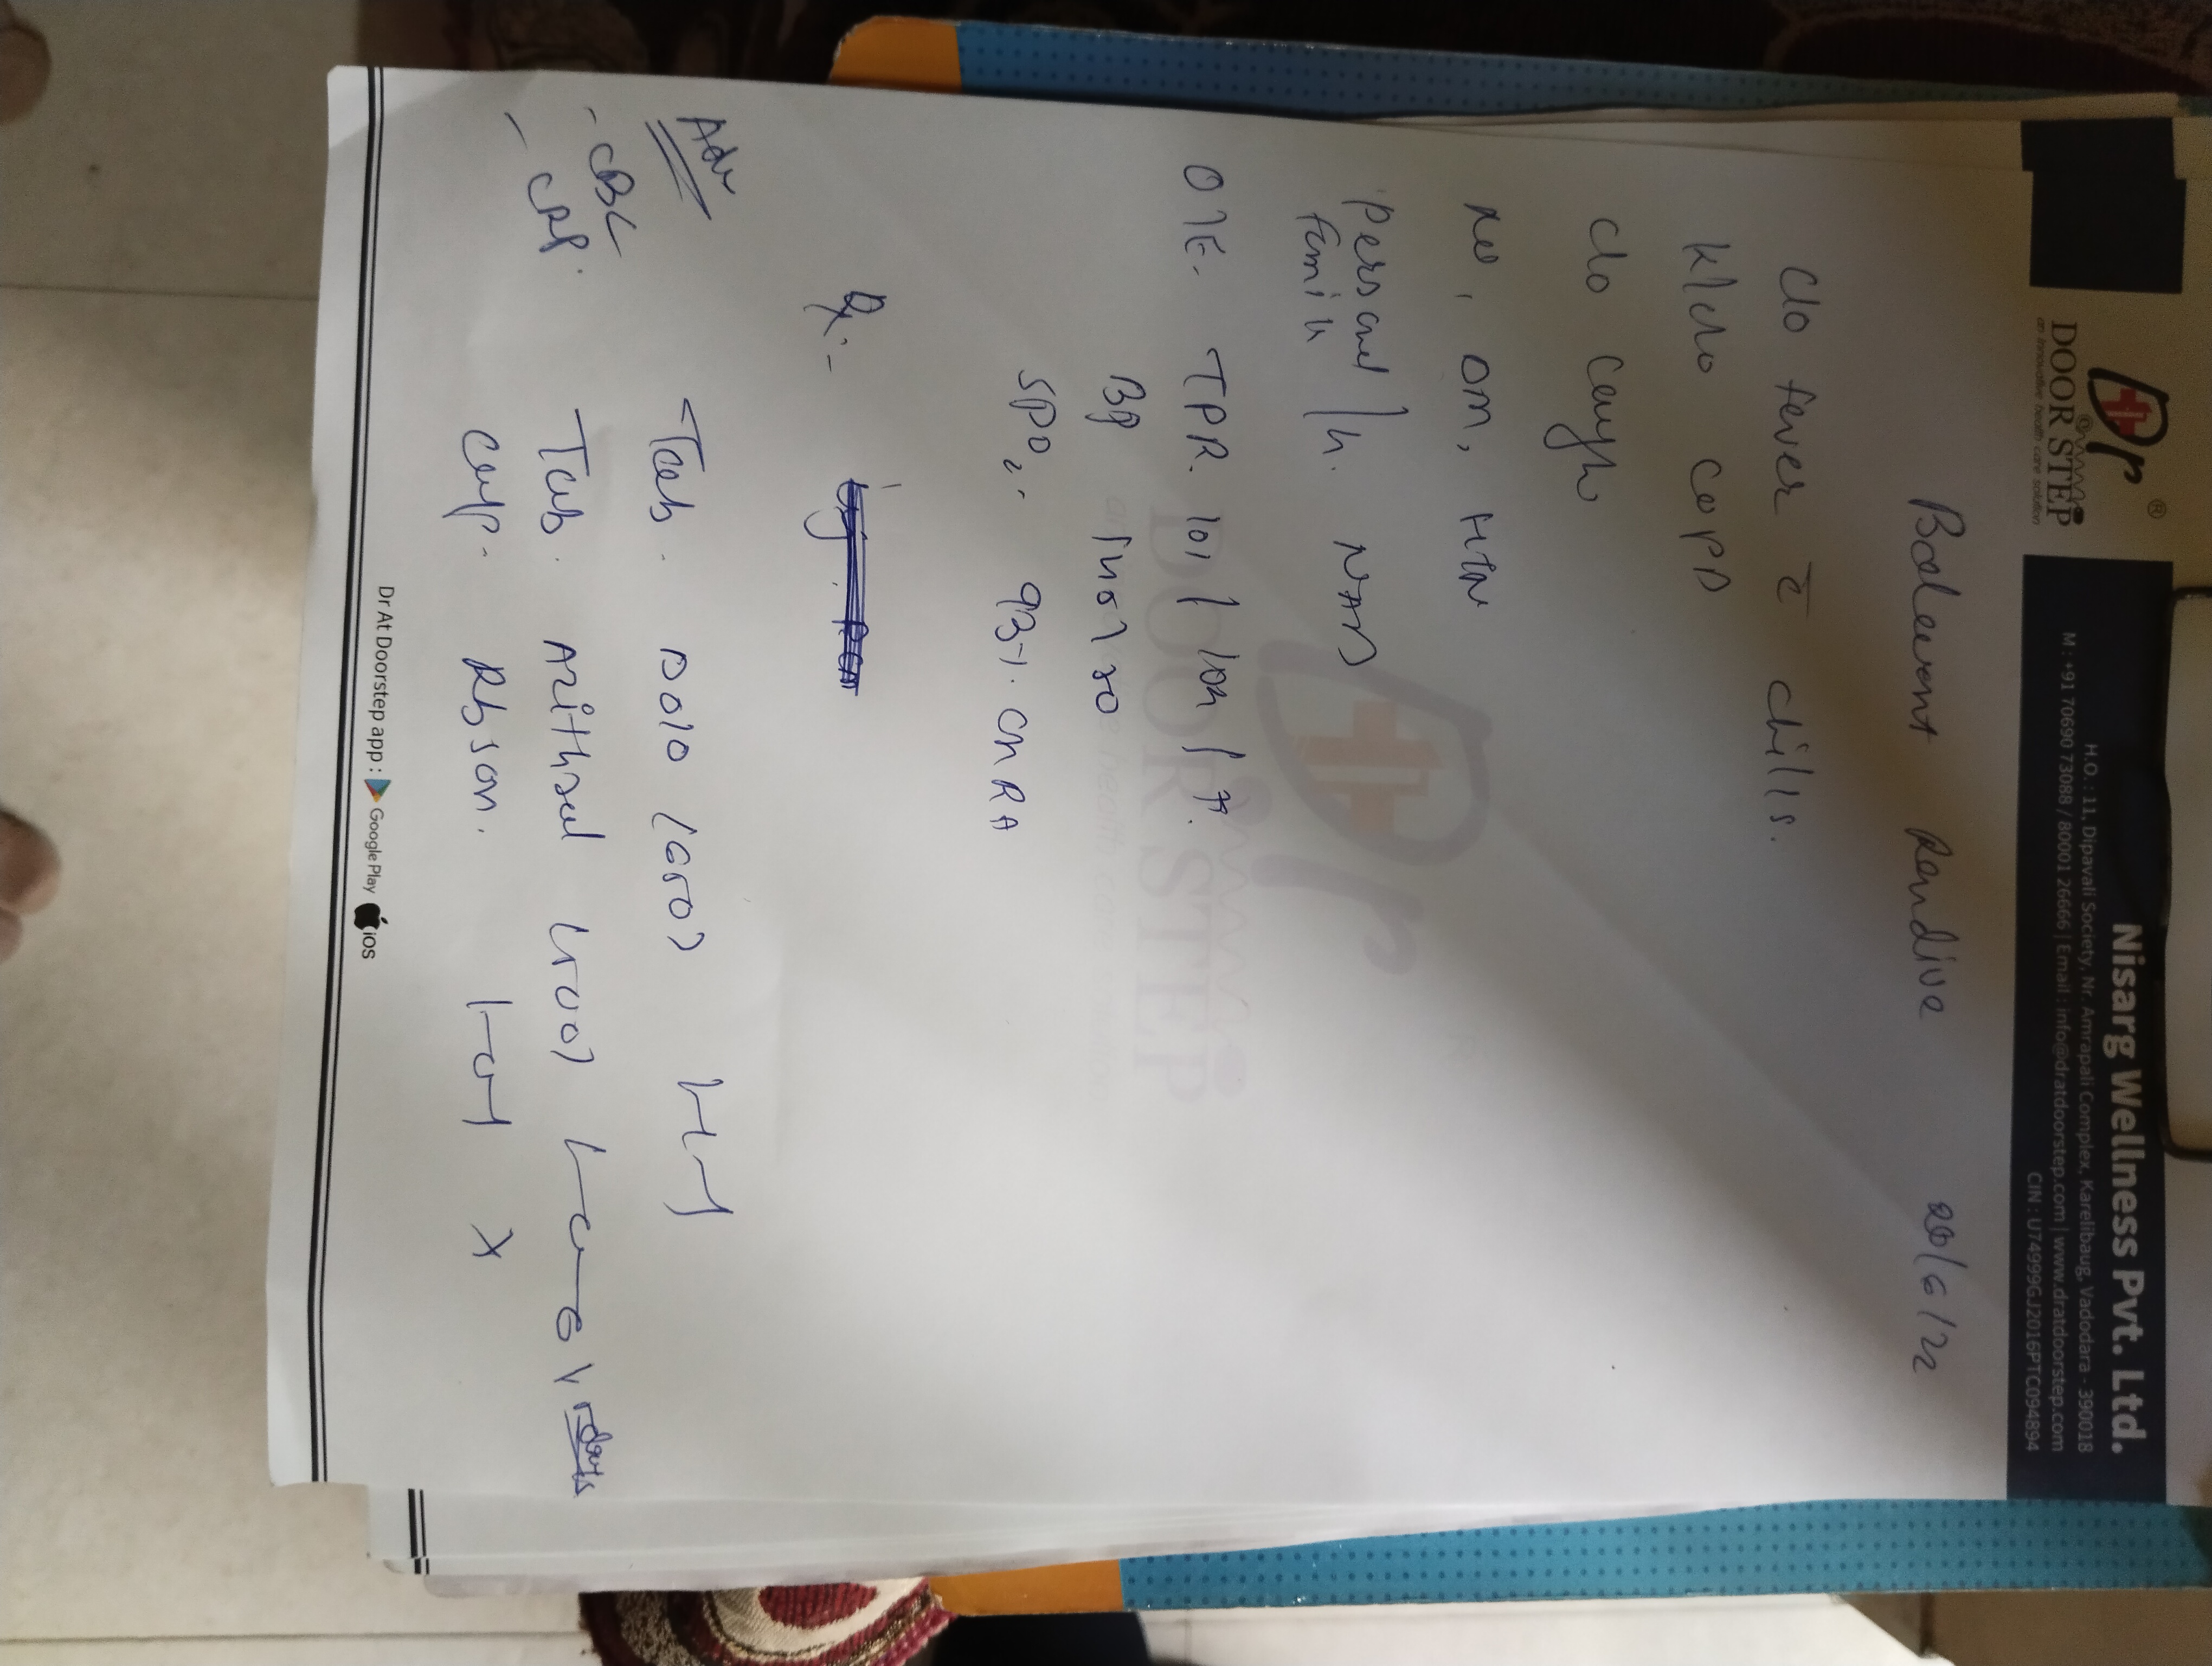 Dr
DOOR STEP
an innovative health care solution
Nisarg Wellness Pvt. Ltd.
H.O. : 11, Dipavali Society, Nr. Amrapali Complex, Karelibaug, Vadodara - 390018
M : +91 70690 73088 / 80001 26666 | Email : info@dratdoorstep.com | www.dratdoorstep.com
CIN : U74999GJ2016PTC094894
Balewant Randive /6/22
C/o fever c̄ chills.
K/c/o COPD
C/o Cough
No, DM, HTN
personal /h. NAD
family
O/E. TPR. 101/104/
BP
SPO2. 93%. On RA
Rx:-
Adv
- CBC
- CRP.
Tab. Dolo (650) 1-1-1
Tab. Azithral (500) 1-0-0 x 5 days
Cap. Rbson. 1-0-1 X
DOOR STEP
Dr At Doorstep app : Google Play iOS